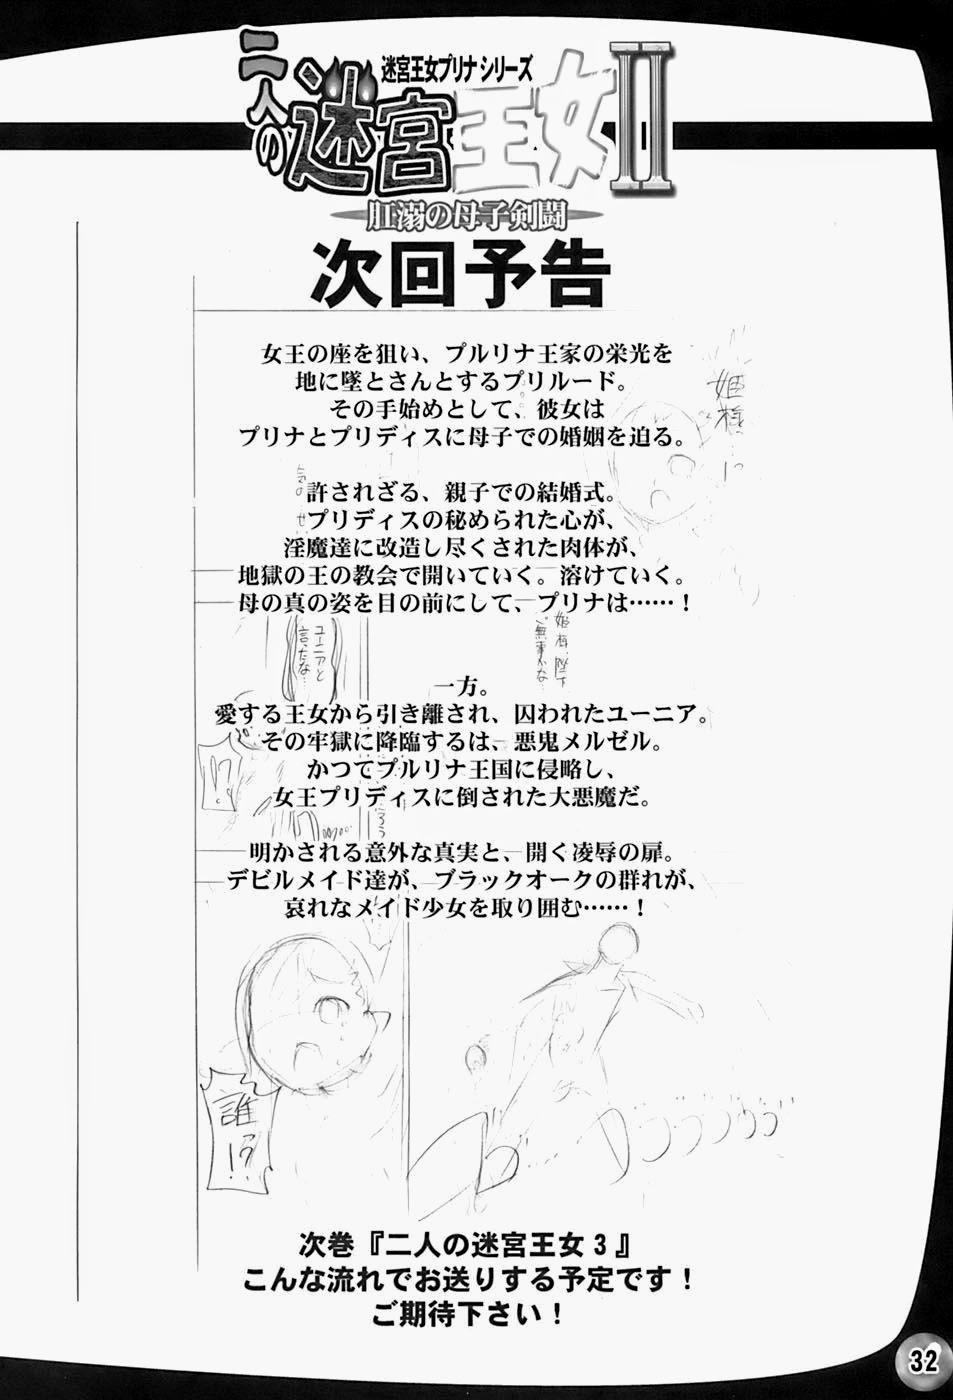 迷宮王女プリナシリーズ
二人の迷宮王女Ⅱ
肛溺の母子剣闘
次回予告
女王の座を狙い、プルリナ王家の栄光を
地に墜とさんとするプリルード。
その手始めとして、彼女は
プリナとプリディスに母子での婚姻を迫る。
許されざる、親子での結婚式。
プリディスの秘められた心が、
淫魔達に改造し尽くされた肉体が、
地獄の王の教会で開いていく。溶けていく。
母の真の姿を目の前にして、プリナは……！
一方。
愛する王女から引き離され、囚われたユーニア。
その牢獄に降臨するは、悪鬼メルゼル。
かつてプルリナ王国に侵略し、
女王プリディスに倒された大悪魔だ。
明かされる意外な真実と、開く凌辱の扉。
デビルメイド達が、ブラックオークの群れが、
哀れなメイド少女を取り囲む……！
姫様…っ
姫様、陛下
ご無事かな…
ユーニアと
言ったな…
!?
誰!?
次巻『二人の迷宮王女３』
こんな流れでお送りする予定です！
ご期待下さい！
32